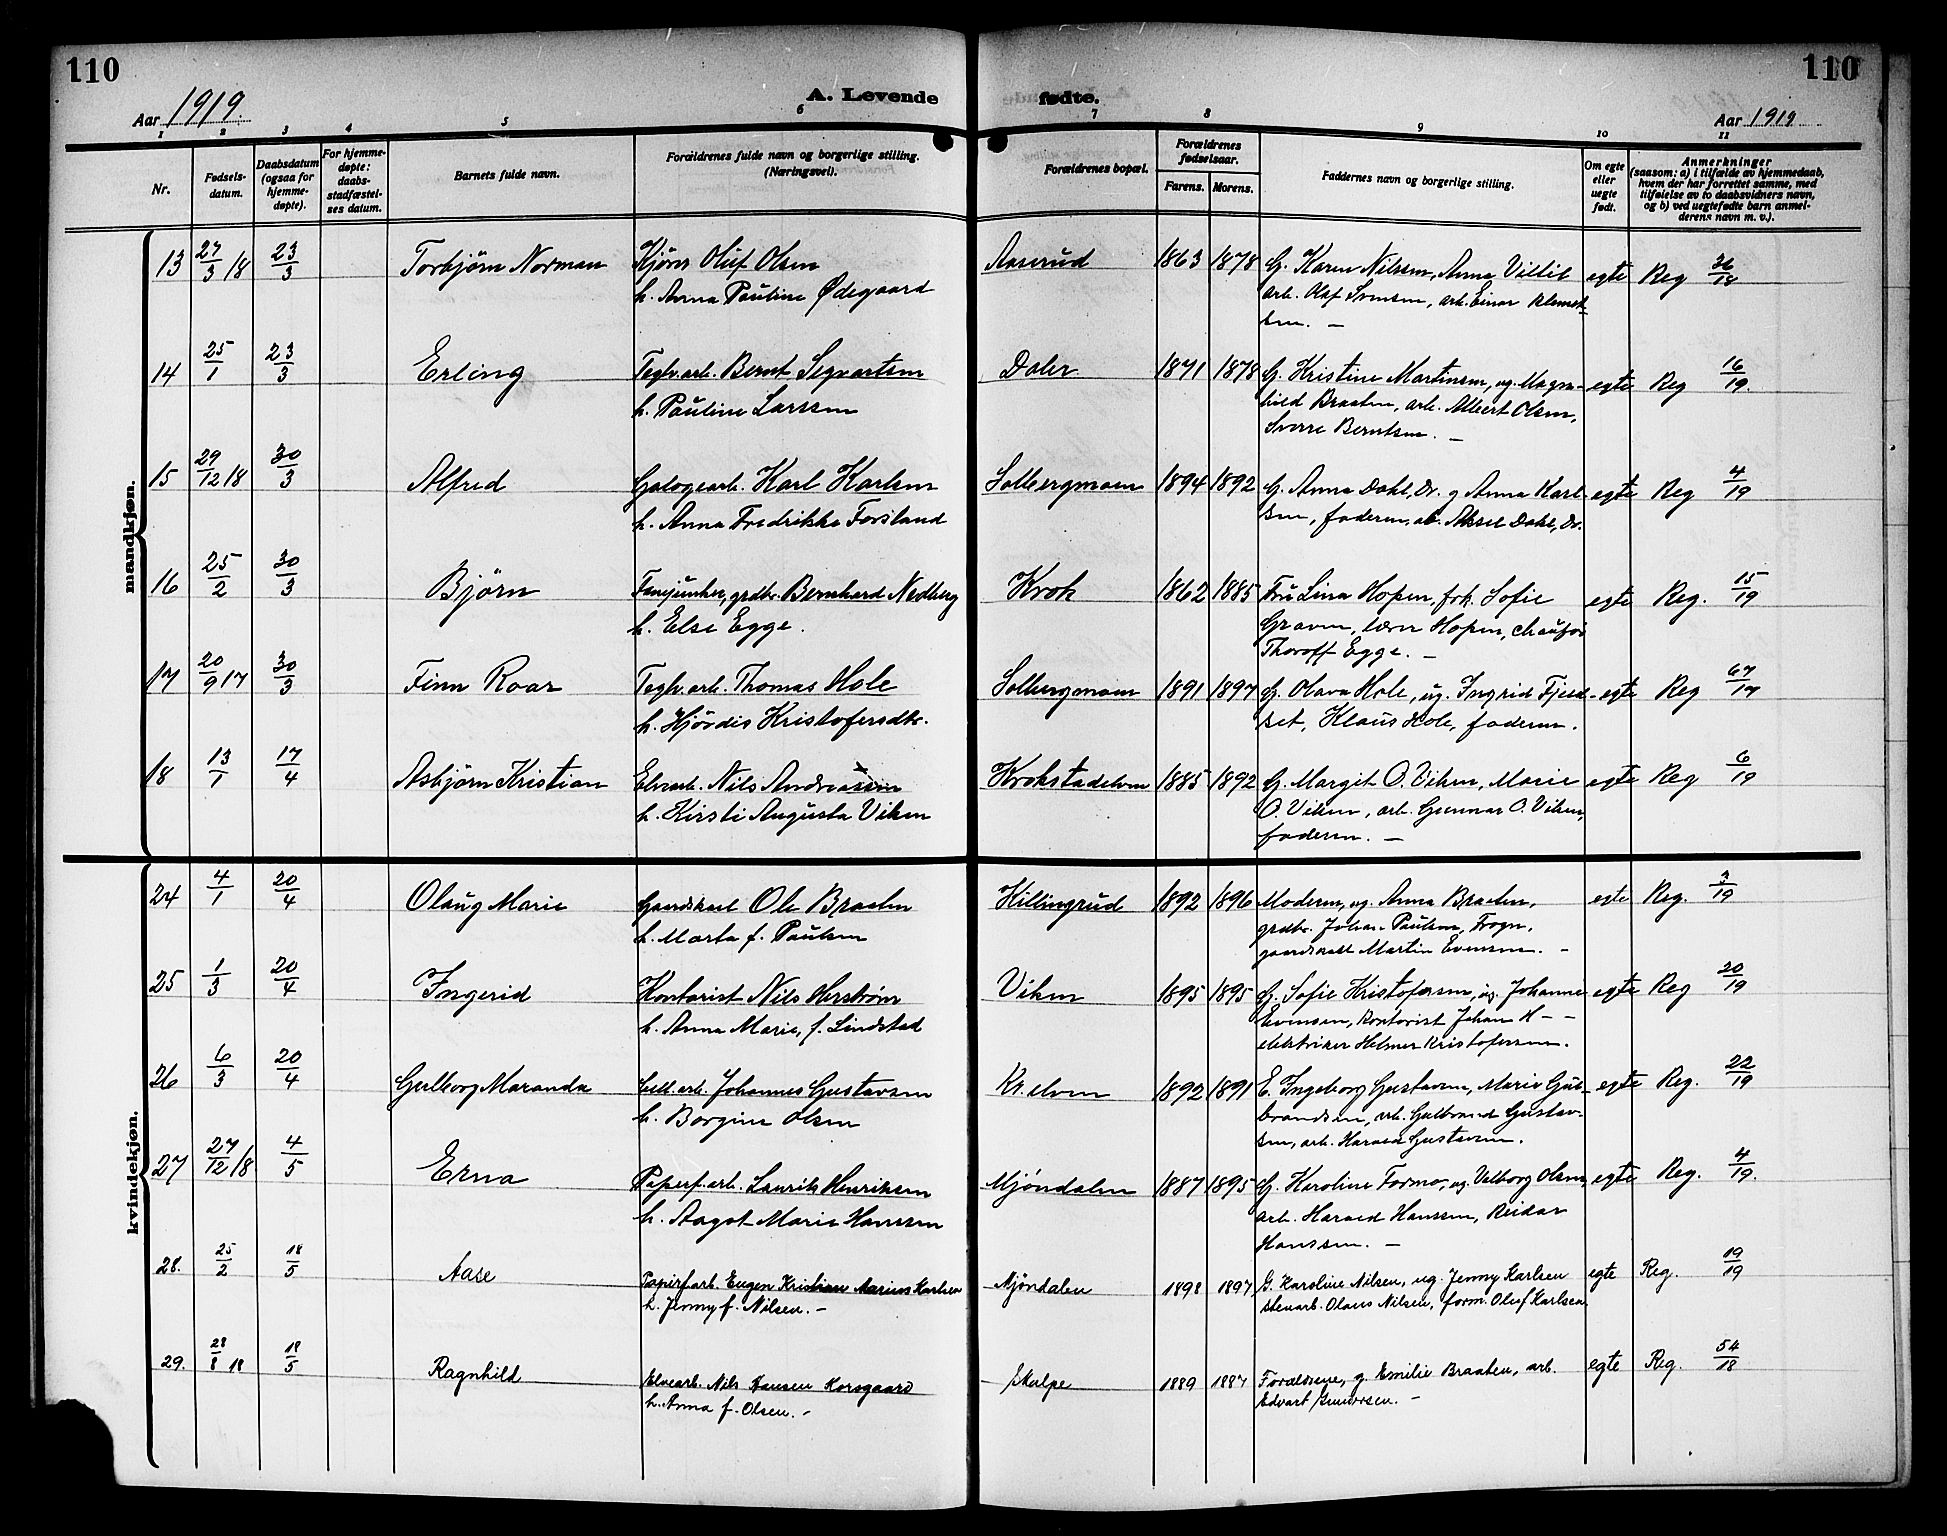 110
110
A. Levende fødte.
Aar 1919.
Aar 1919
1 2 3 4 5 6 7 8 9 10 11
Nr.
Fødsels-
datum.
Daabsdatum
(ogsaa for
hjemme-
døpte).
For hjemme-
døpte:
daabs-
stadfæstel-
ses datum.
Barnets fulde navn.
Forældrenes fulde navn og borgerlige stilling.
(Næringsvei).
Forældrenes bopæl.
Forældrenes
fødselsaar.
Farens. Morens.
Faddernes navn og borgerlige stilling.
Om egte
eller
uegte
født.
Anmerkninger
(saasom: a) i tilfælde av hjemmedaab,
hvem der har forrettet samme, med
tilføielse av to daabsvidners navn,
og b) ved uegtefødte barn anmel-
derens navn m. v.).
mandkjøn.
13 27/3 18 23/3 Torbjørn Norman Kjører Oluf Olsen Aaserud 1863 1878 G. Karen Nilssen, Anna Viltil egte Reg 36/18
h. Anna Pauline Ødegaard arb. Olaf Svensen, arb. Einar Klemet-
sen. —
14 25/1 23/3 Erling Teglv.arb. Bernt Sigvartsen Daler 1871 1878 G. Kristine Martinsen, ug. Magn- egte Reg 16/19.
h. Pauline Larssen hild Braaten, arb. Albert Olsen,
Sverre Berntsen. —
15 29/12 18 30/3 Alfred Galogearb. Karl Karlsen Solbergmoen 1894 1892 G. Anna Dahl, Dr. g Anna Karl- egte Reg 4/19
h. Anna Fredrikke Forsland sen, faderen, ab. Aksel Dahl, Dr.
16 25/2 30/3 Bjørn Fanejunker, grdbr. Bernhard Nedberg Krok 1862 1885 Fru Lina Hopen, frk. Sofie egte Reg. 15/19
h. Else Egge. Graven, lærer Hopen, chaufør
Thoroff Egge. —
17 20/9 17 30/3 Finn Roar Teglv.arb. Thomas Hole Solbergmoen 1891 1897 G. Olava Hole, ug. Ingrid Fjeld- egte Reg 67/17
h. Hjørdis Kristofersdtr. set, Klaus Hole, faderen.
18 13/1 17/4 Asbjørn Kristian Elvearb. Nils Andreassen Krokstadelven 1885 1892 G. Margit O. Viken, Marie egte Reg 6/19
h. Kirsti Augusta Viken O. Viken, arb. Gunnar O. Viken,
faderen. —
kvindekjøn.
24 4/1 20/4 Olaug Marie Gaardskarl Ole Braaten Killingrud 1892 1896 Moderen, ug. Anna Braaten, egte Reg. 3/19
h. Marta f. Paulsen grdbr. Johan Paulsen, Frogn,
gaardskarl Martin Evensen. —
25 1/3 20/4 Ingerid Kontorist Nils Herstrøm Viken 1895 1895 G. Sofie Kristofersen, ug. Johanne egte Reg 20/19
h. Anna Marie, f. Lindstad Evensen, kontorist Johan H- -
elektriker Helmer Kristofersen.
26 6/3 20/4 Gulborg Maranda Cell.arb. Johannes Gustavsen Kr.elven 1892 1891 E. Ingeborg Gustavsen, Marie Gul- egte Reg. 22/19
h. Borgine Olsen brandsen, arb. Gulbrand Gustav-
sen, arb. Harald Gustavsen.
27 27/12 18 4/5 Erna Papirf.arb. Laurits Henriksen Mjøndalen 1887 1895 G. Karoline Formo, ug. Valborg Olsen, egte Reg. 4/19.
h. Aagot Marie Hanssen arb. Harald Hanssen, Reidar
Hanssen. —
28. 25/2 18/5 Aase Papirf.arb. Eugen Kristian Marius Karlsen Mjøndalen 1898 1897 G. Karoline Nilsen, ug. Jenny Karlsen egte Reg. 19/19
h. Jenny f. Nilsen. — stenarb. Olaus Nilsen, form. Oluf Karlsen
29. 28/8 18 18/5 Ragnhild Elvearb. Nils Hansen Korsgaard Skalpe 1889 1887 Forældrene, g. Emilie Braaten, arb. egte Reg. 54/18
h. Anna f. Olsen. — Edvart Gundersen. —